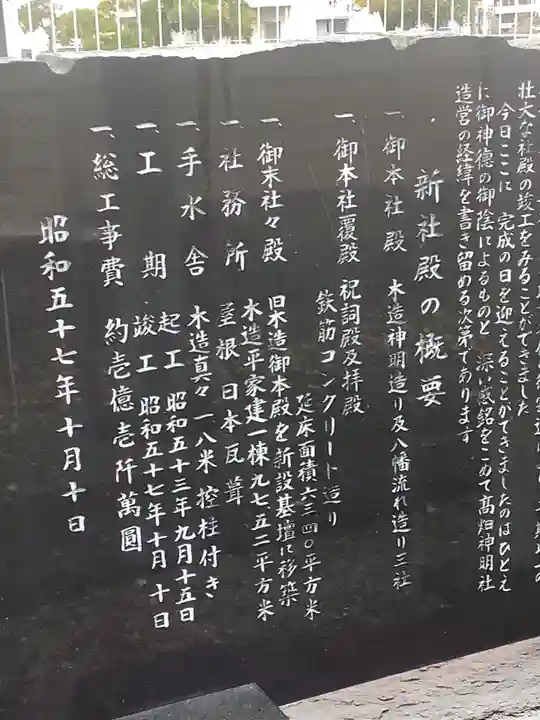 壮大な社殿の竣工をみることができました
今日ここに 完成の日を迎えることができましたのはひとえ
に御神德の御陰によるものと 深い感銘をこめて髙畑神明社
造営の経緯を書き留める次第であります
新社殿の概要
一、御本社殿 木造神明造り及八幡流れ造り三社
一、御本社覆殿 祝詞殿及拝殿
鉄筋コンクリート造り
延床面積六三四〇平方米
一、御末社々殿 旧木造御本殿を新設基壇に移築
一、社務所 木造平家建一棟九七五二平方米
屋根日本瓦葺
一、手水舎 木造真々一八米控柱付き
一、工期 起工 昭和五十三年九月十五日
竣工 昭和五十七年十月十日
一、総工事費 約壱億壱仟萬圓
昭和五十七年十月十日